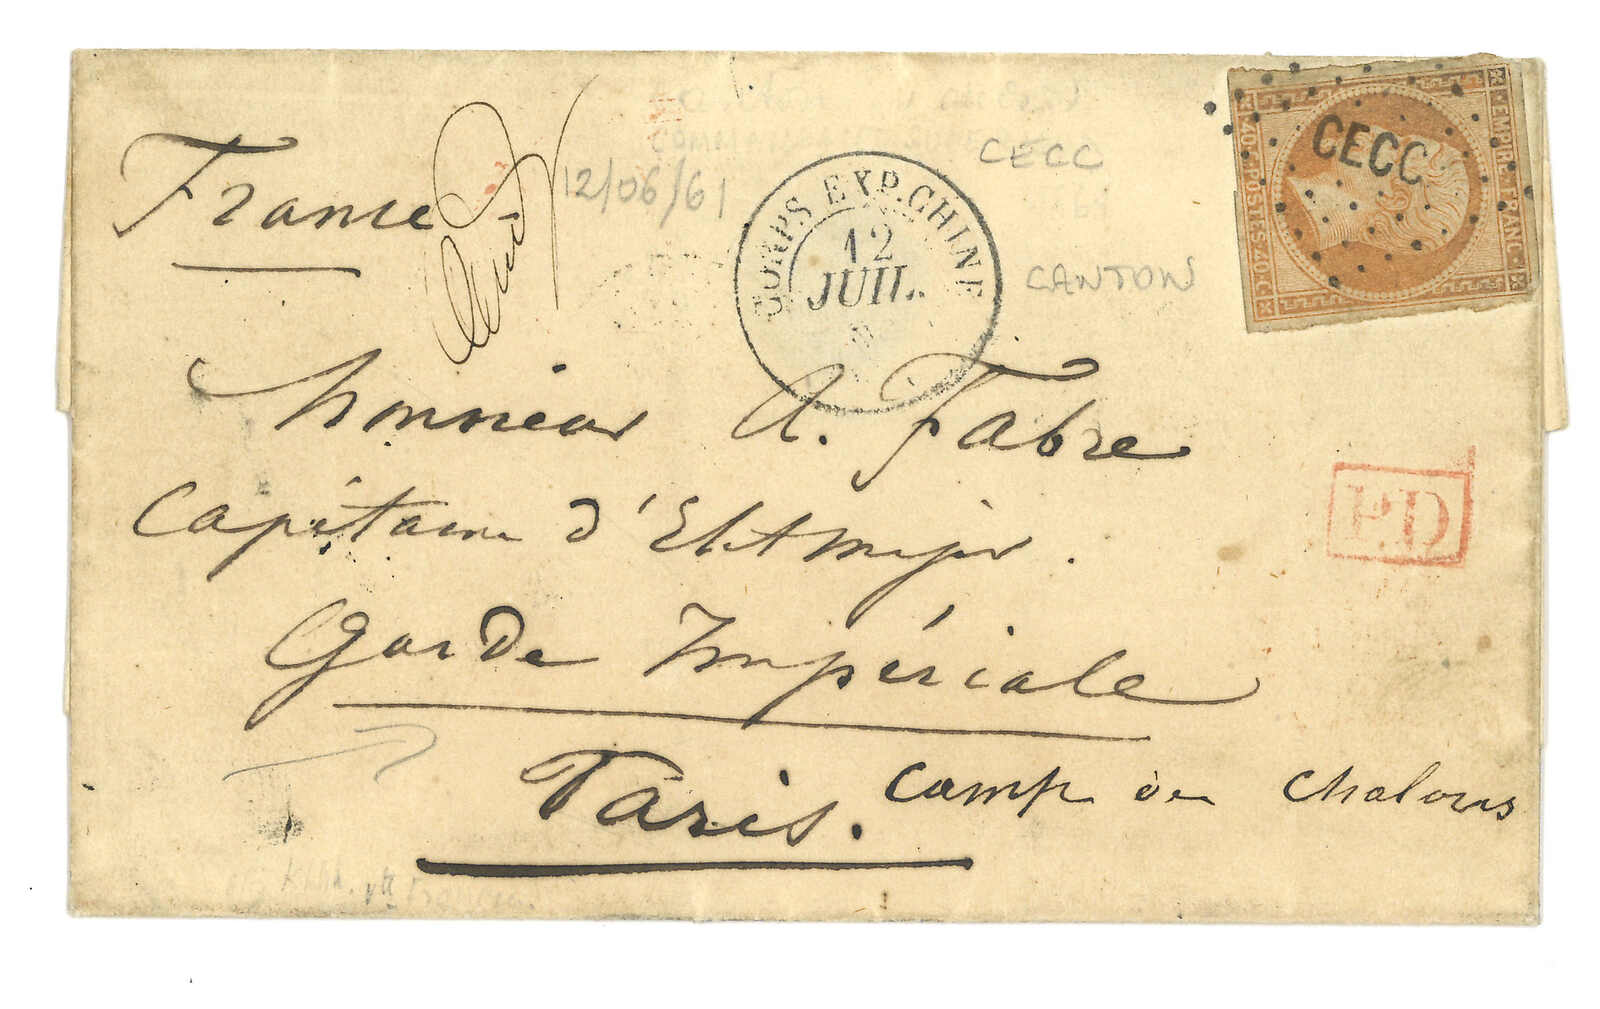 France
12/06/61
CORPS EXP. CHINE
12
JUIL.
CECC
CANTON
EMPIRE FRANC.
40 c. POSTES 40 c.
CECC
Monsieur A. Fabre
Capitaine d'Etat major.
P.D
Garde Impériale
Paris. Camp de Chalons